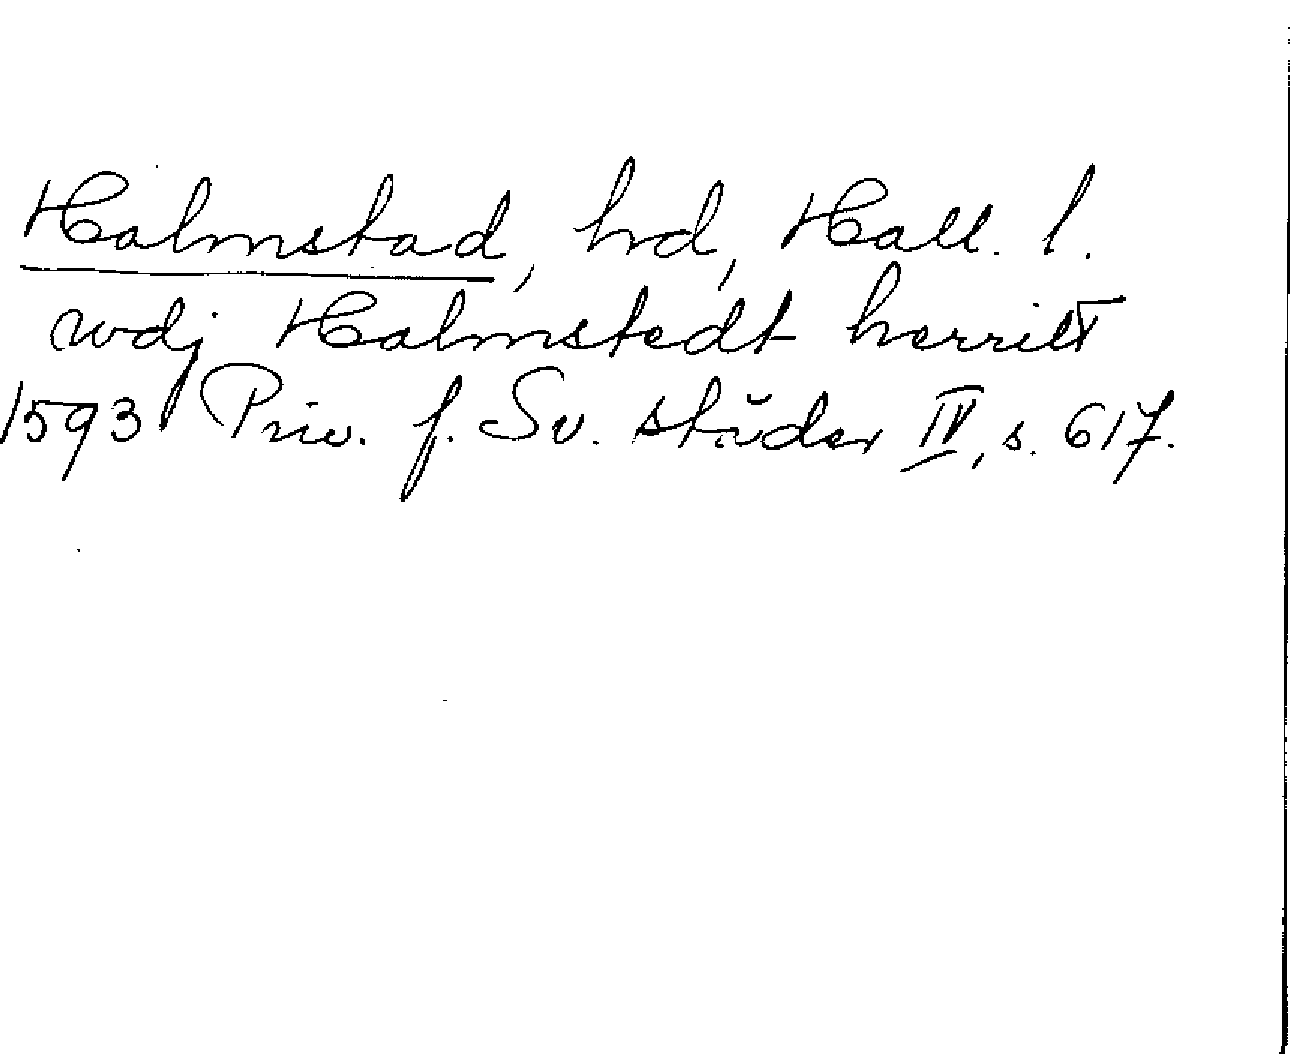 Halmstad, hrd, Hall. l.
wdj Halmstedt herritt
1593 Priv. f. Sv. städer IV, s. 617.